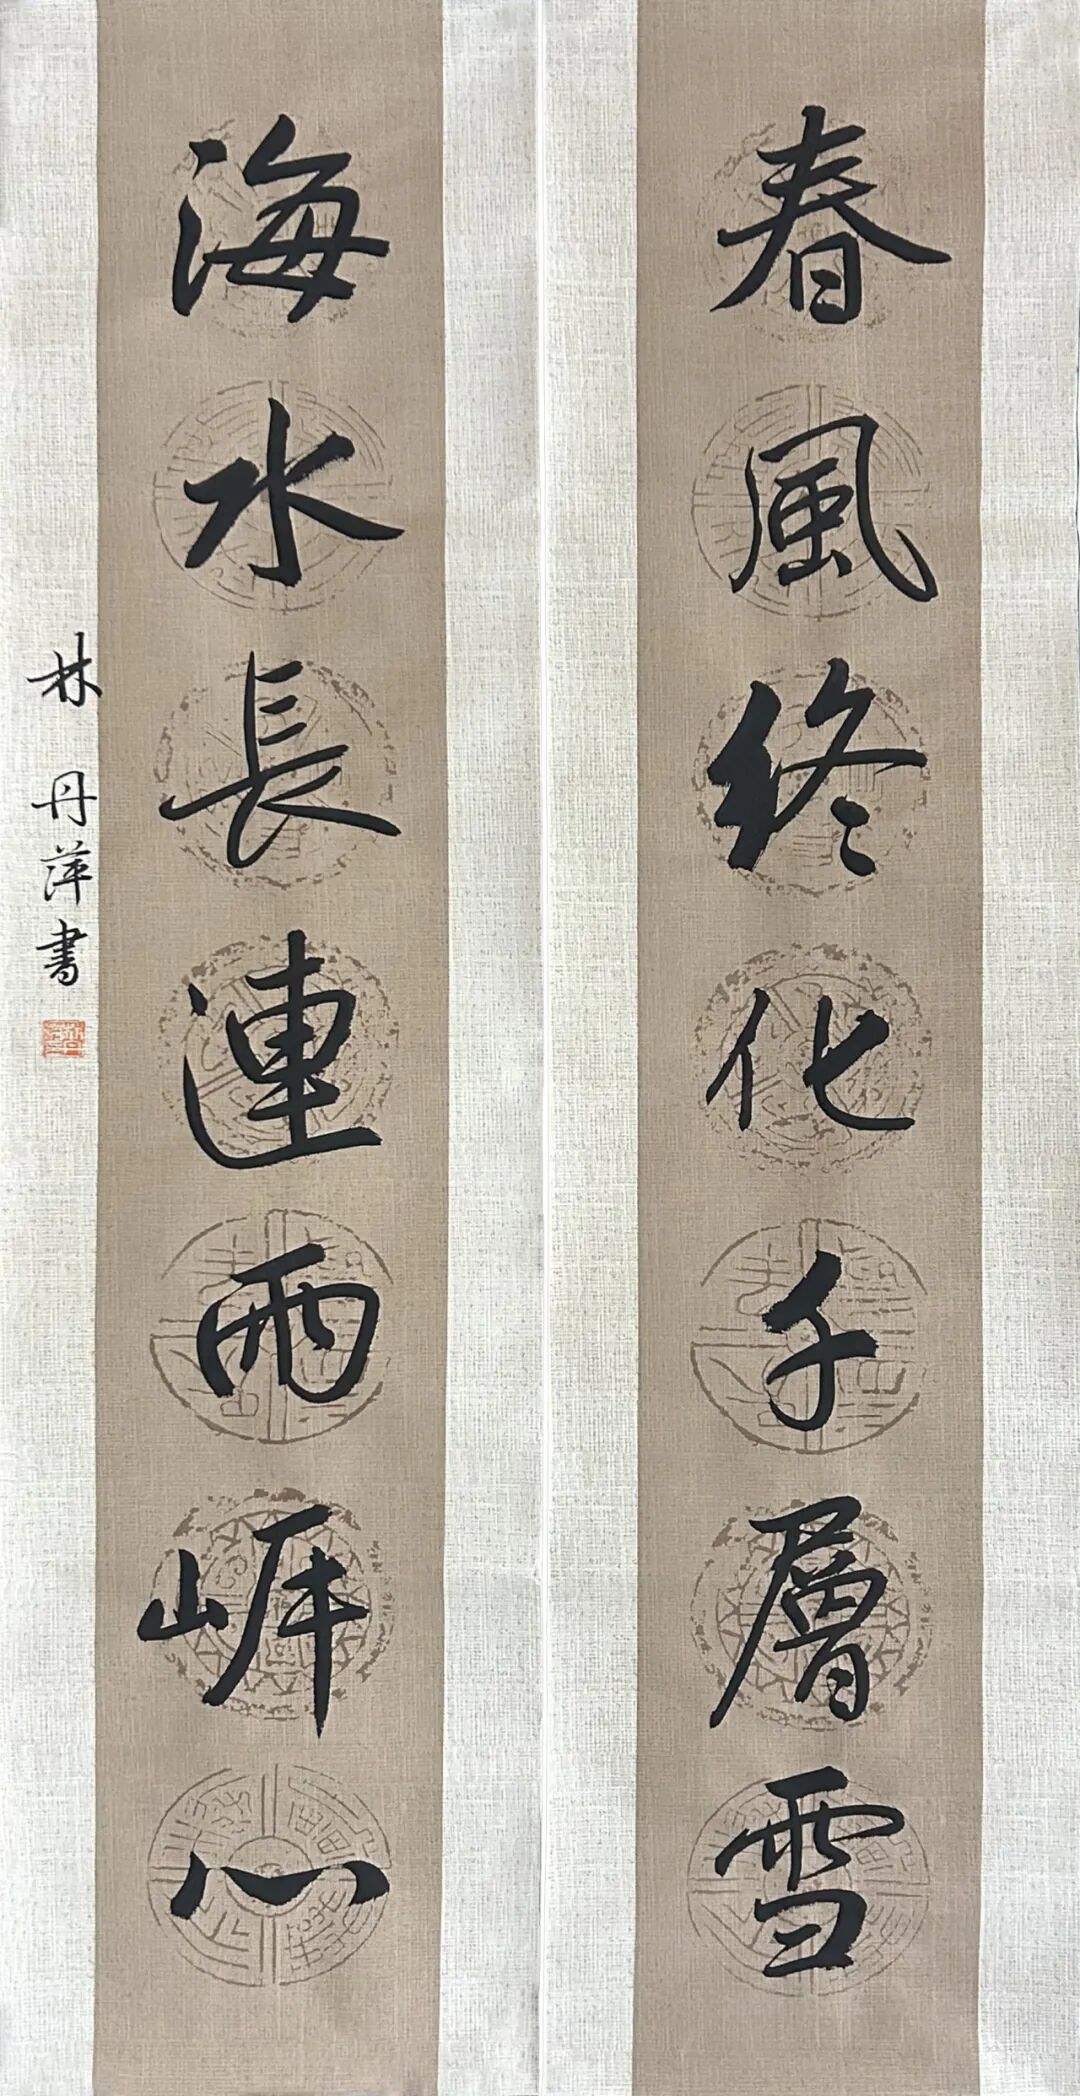 春風終化千層雪
海水長連兩岸心
林丹萍書